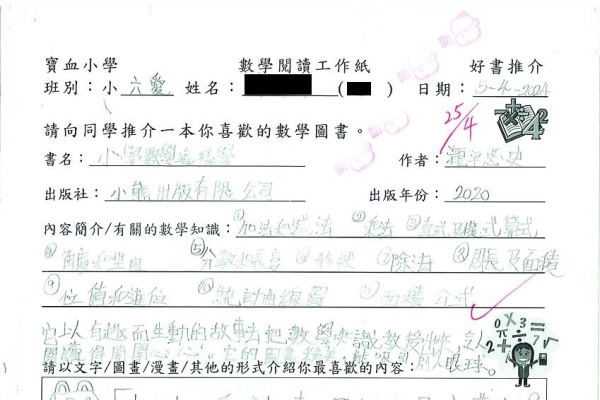 寶血小學 數學閱讀工作紙 好書推介
班別：小 六愛 姓名： ( ) 日期：5-4-2024
25/4
請向同學推介一本你喜歡的數學圖書。
書名：小學數學這樣學 作者：瀧平悠史
出版社：小熊出版有限公司 出版年份：2020
內容簡介/有關的數學知識：①加法和減法 ②乘法 ③直式及橫式算式
④角度和空間 ⑤分數和長度 ⑥形狀 ⑦除法 ⑧周長及面積
⑨位值和進位 ⑩統計曲線圖 ⑪面積公式
它以有趣而生動的故事去把數學知識教授
請以文字/圖畫/漫畫/其他的形式介紹你最喜歡的內容： 眼球。